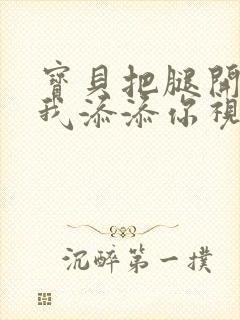 寶貝把腿開
我添添你視
沉醉第一撲